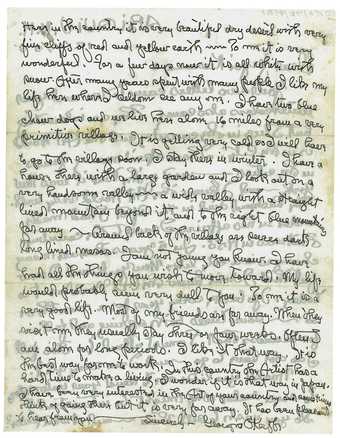 Here in the country it is very beautiful dry desert with very
fine cliffs of red and yellow earth — To me it is very
wonderful. For a few days now it is all white with
snow. After many years spent with many people I like my
life here where I seldom see any one. I have two blue
chow dogs and we live here alone 16 miles from a very
primitive village. It is getting very cold so I will have
to go to the village soon. I stay there in winter. I have a
house there with a large garden and I look out on a
very handsome valley — a wide valley with a straight
lined mountain beyond it and to the right blue mountains
far away — Around back of the village are several dark
long lined mesas. I am not young you know. I have
had all the things you wish to move toward. My life
would probably seem very dull to you. To me it is a
very good life. Most of my friends are far away. When they
visit me they usually stay three or four weeks. Often I
am alone for long periods. I like it that way. It is
the best way for me to work. In this country the Artist has a
hard time to make a living. I wonder if it is that way in Japan.
I have been very interested in the Art of your country and sometimes
think of going there but it is very far away. It has been pleasant
to hear from you
Sincerely — Georgia O'Keeffe